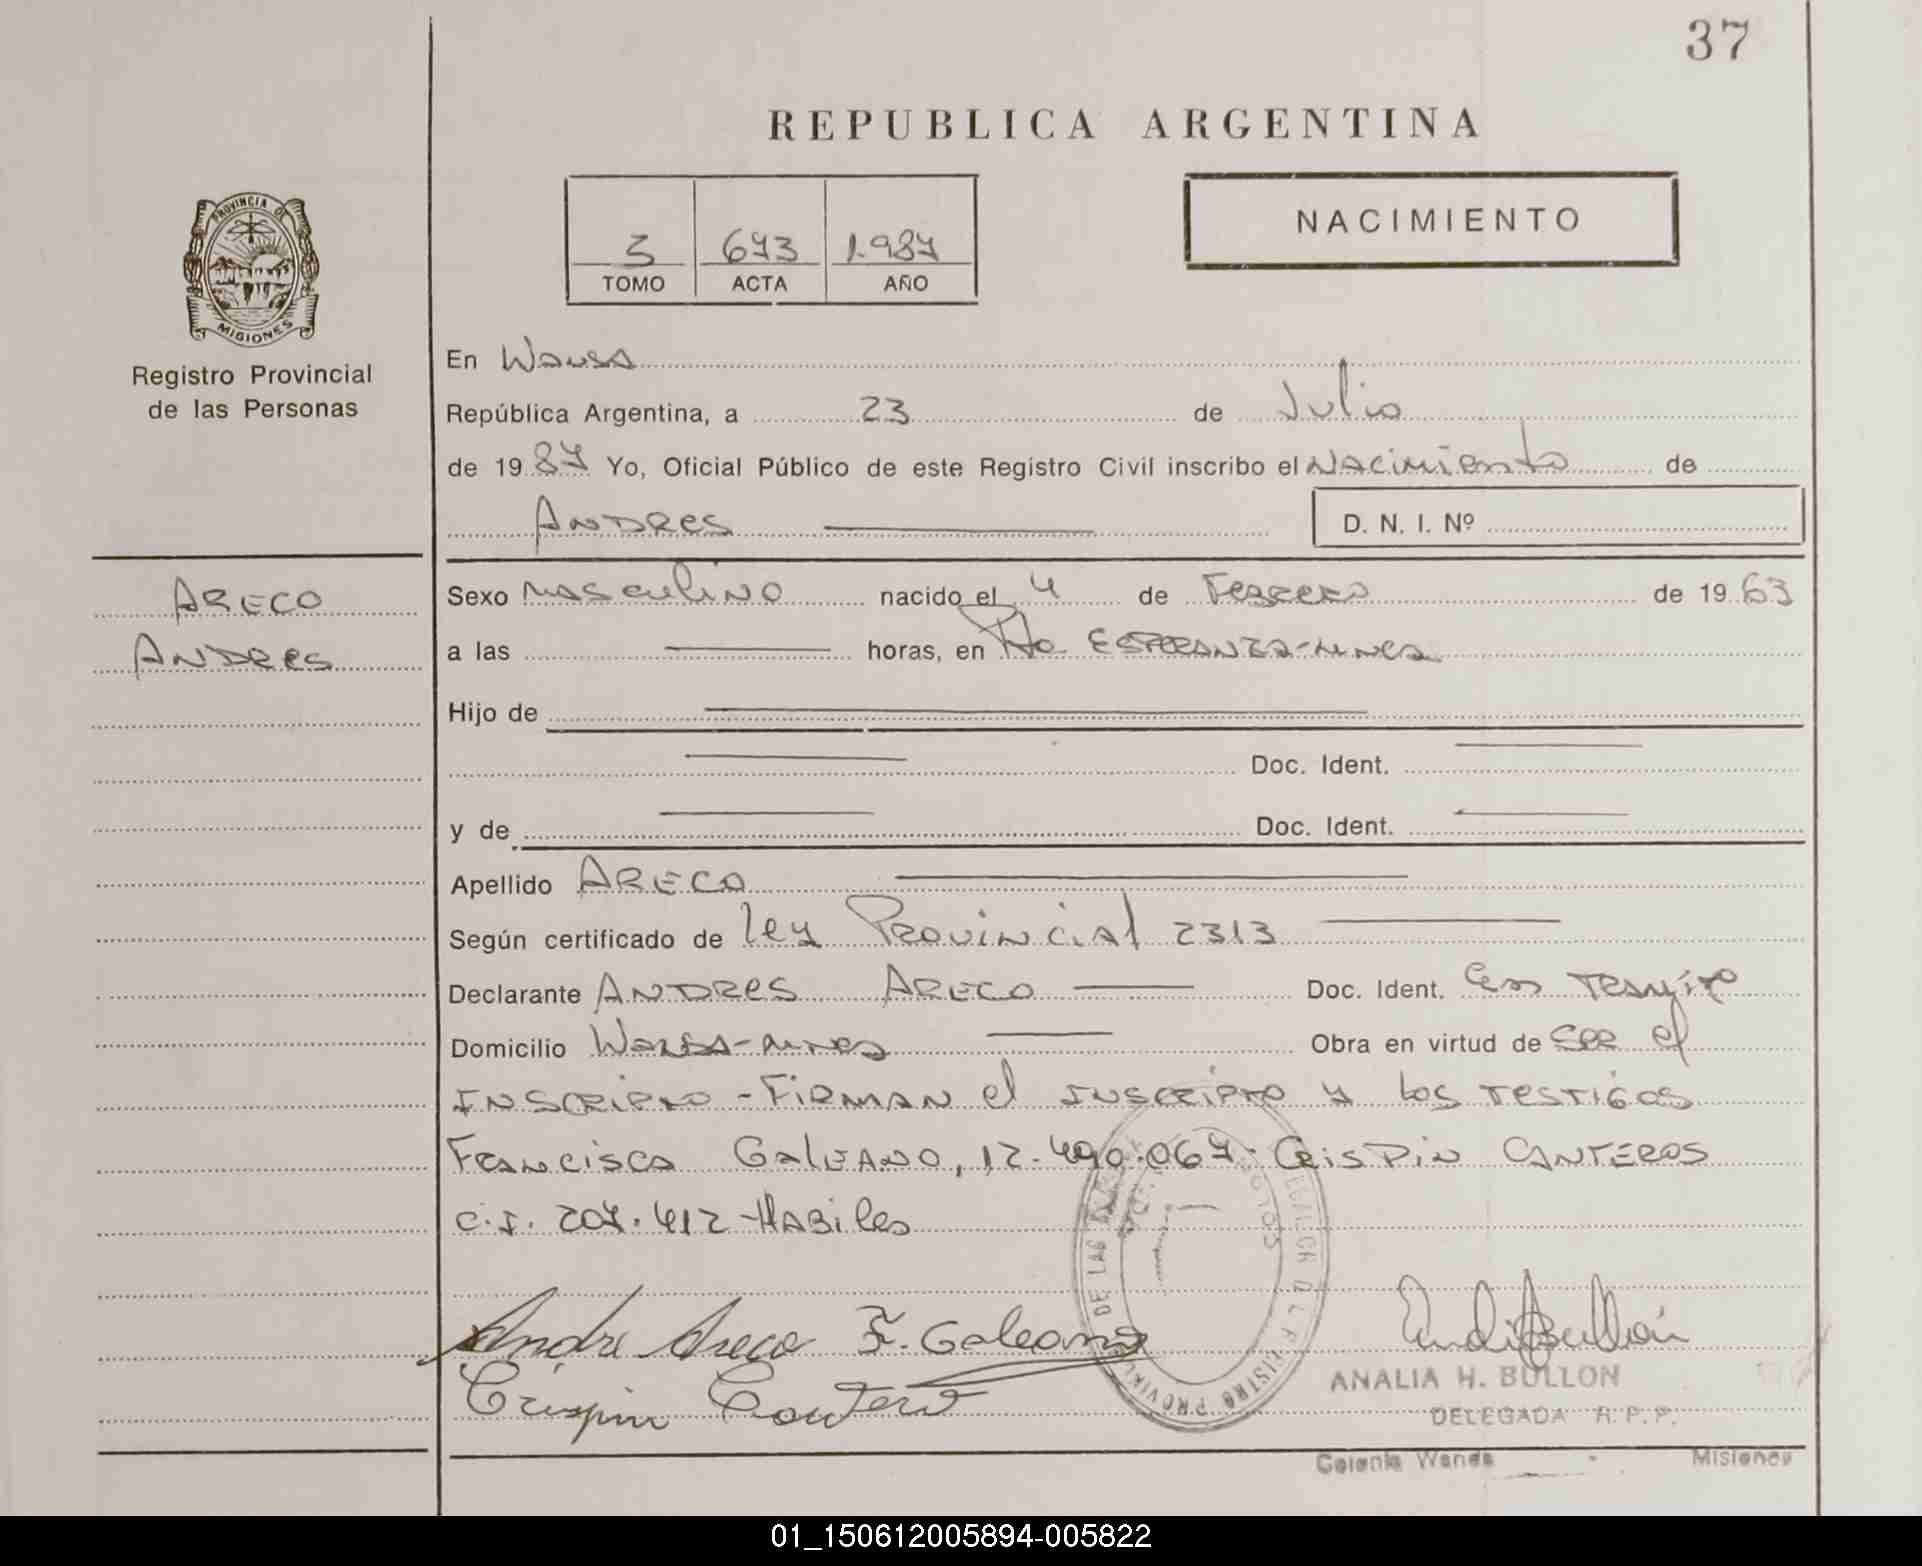 37
REPUBLICA ARGENTINA
PROVINCIA DE
MISIONES
Registro Provincial
de las Personas
3 673 1.987
TOMO ACTA AÑO
NACIMIENTO
En Wanda
República Argentina, a 23 de Julio
de 1987 Yo, Oficial Público de este Registro Civil inscribo el Nacimiento de
ANDRES D. N. I. Nº
ARECO
ANDRES
Sexo masculino nacido el 4 de Febrero de 1963
a las horas, en Pto ESPERANZA-Mnes
Hijo de
Doc. Ident.
y de Doc. Ident.
Apellido ARECO
Según certificado de Ley Provincial 2313
Declarante ANDRES ARECO Doc. Ident. en Tramite
Domicilio Wanda-Mnes Obra en virtud de ser el
INSCRIPTO - FIRMAN el INSCRIPTO y los TESTIGOS
Francisca GALEANO, 12.490.067- CRISPIN CANTEROS
C.I. 207.412-HABILES
Andre Areco F. Galeano
Crispin Cantero
ANALIA H. BULLON
DELEGADA R. P. P.
Colonia Wanda Misiones
01_150612005894-005822